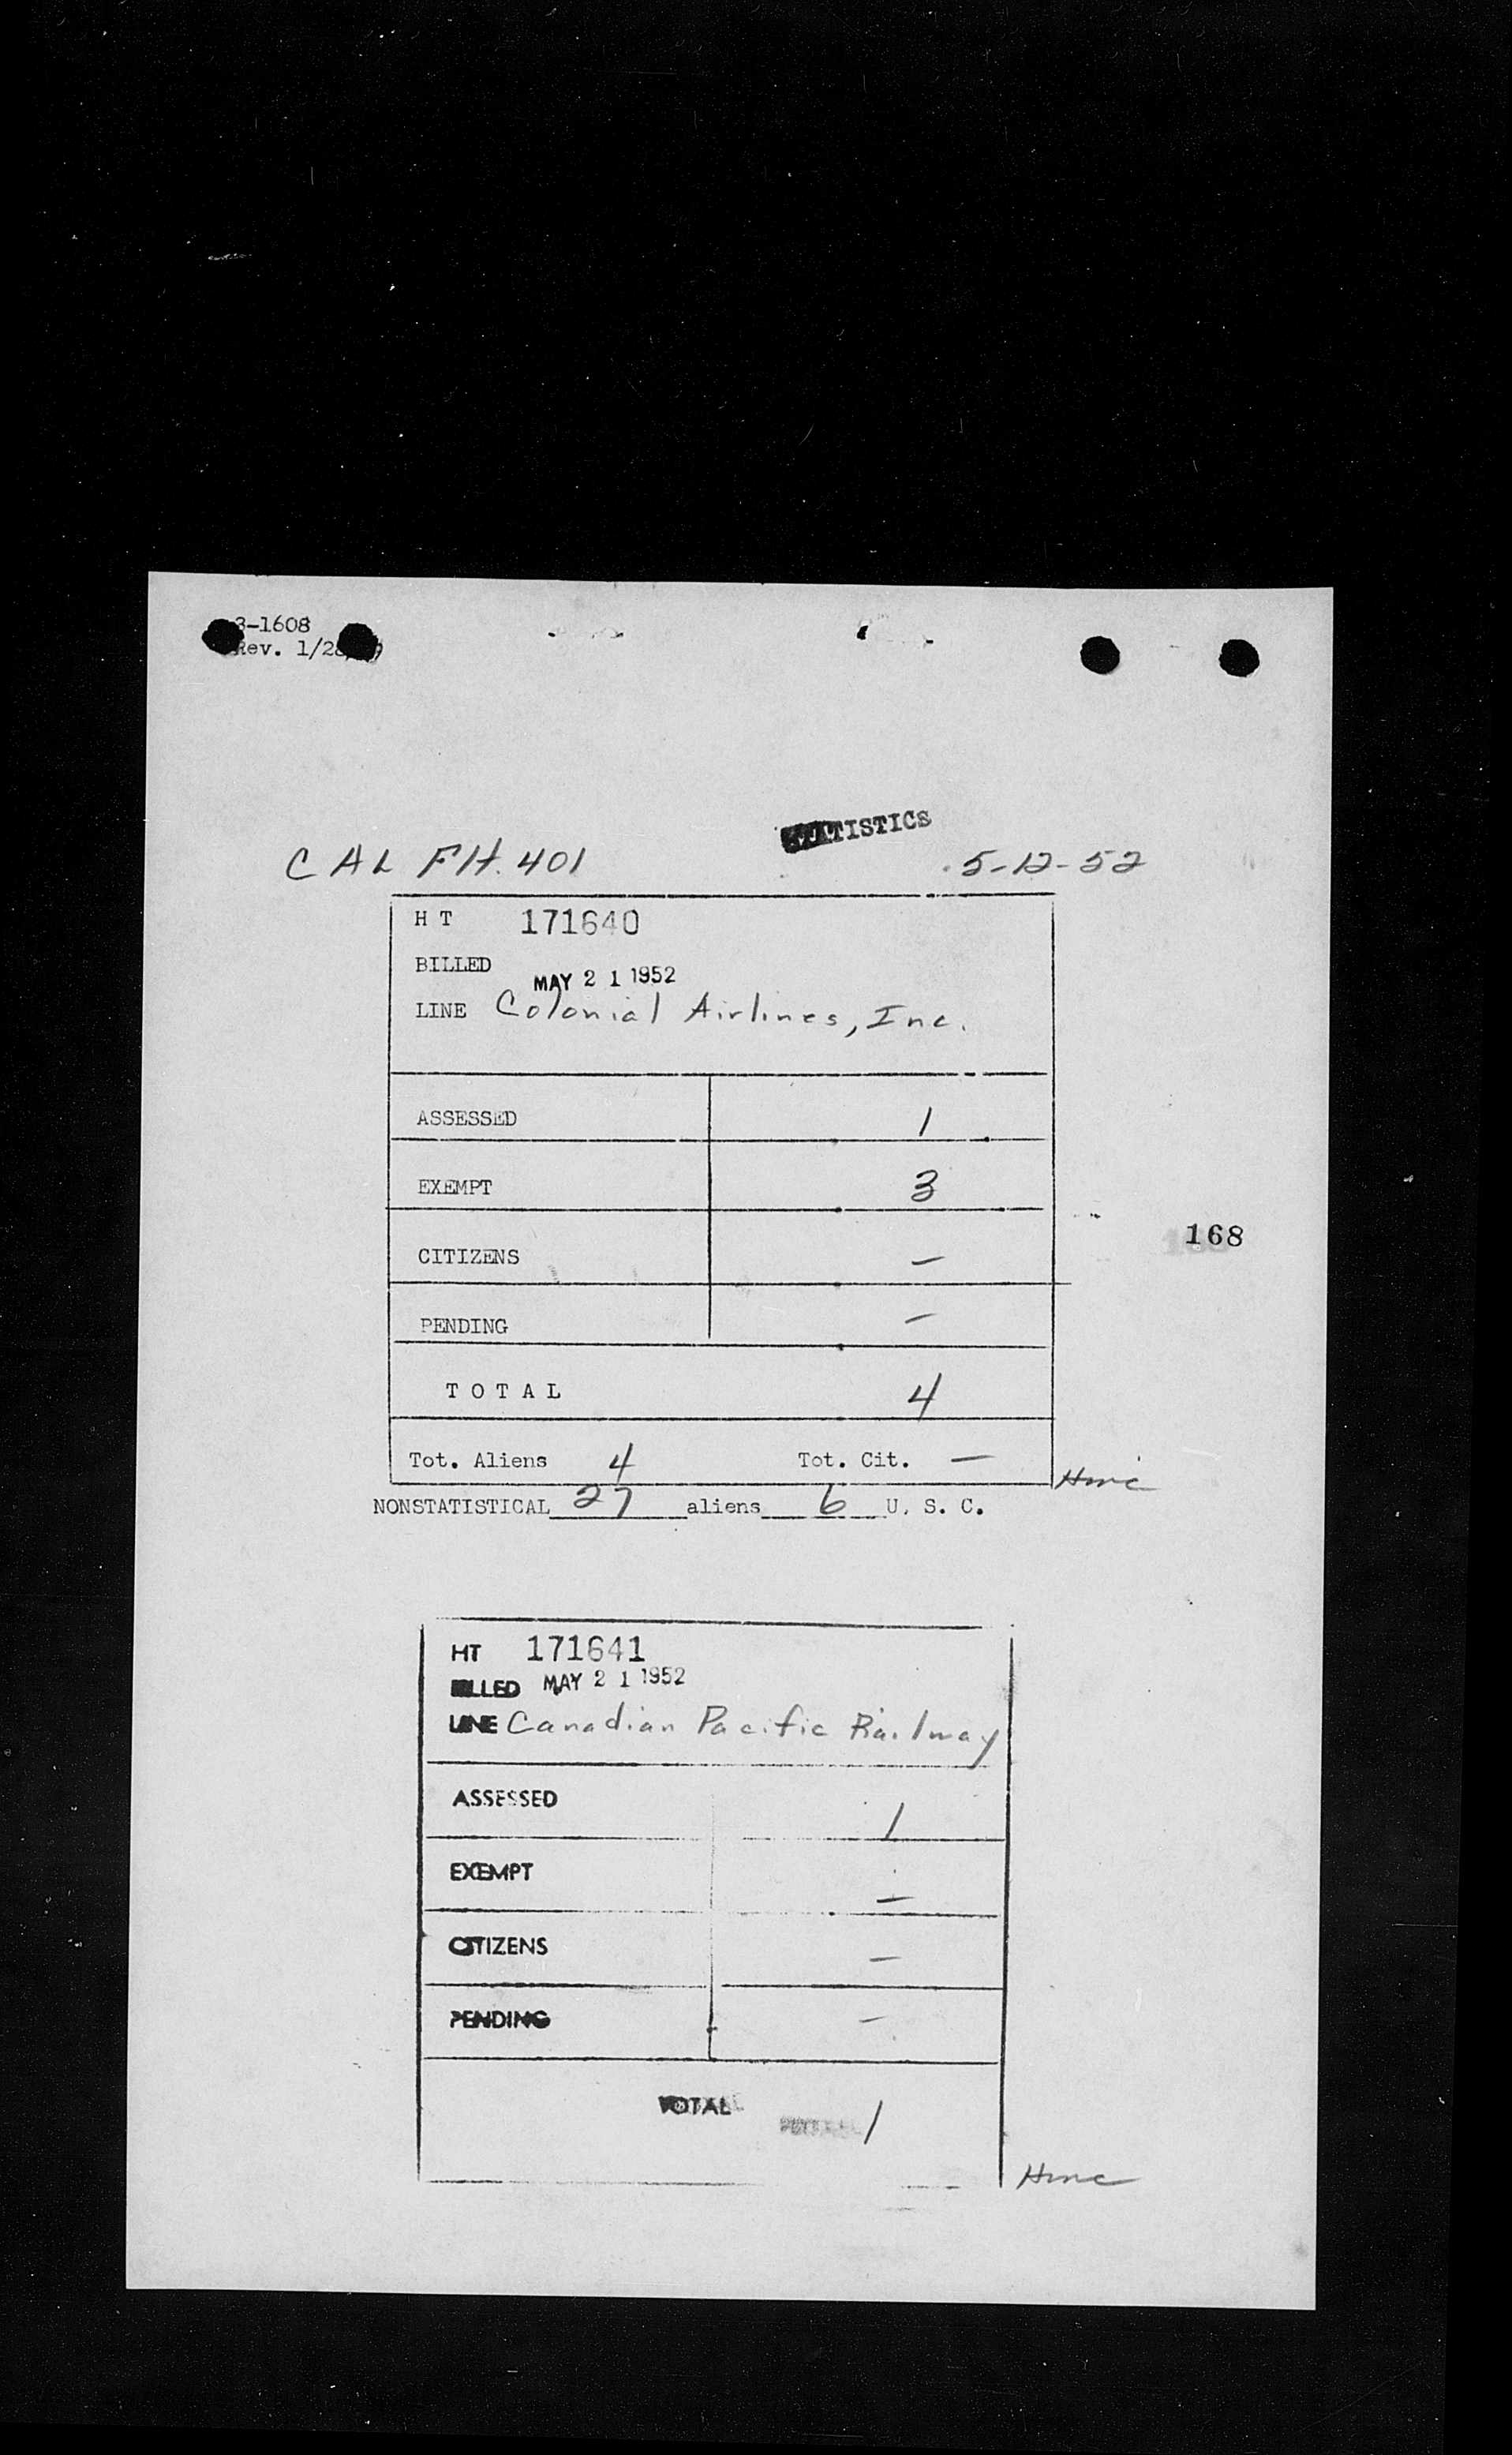 3-1608
Rev. 1/28
STATISTICS
CAL Flt. 401 5-12-52
HT 171640
BILLED MAY 21 1952
LINE Colonial Airlines, Inc.
ASSESSED 1
EXEMPT 3
CITIZENS —
PENDING —
TOTAL 4
Tot. Aliens 4 Tot. Cit. —
NONSTATISTICAL 27 aliens 6 U. S. C.
168
HT 171641
BILLED MAY 21 1952
LINE Canadian Pacific Railway
ASSESSED 1
EXEMPT —
CITIZENS —
PENDING —
TOTAL 1